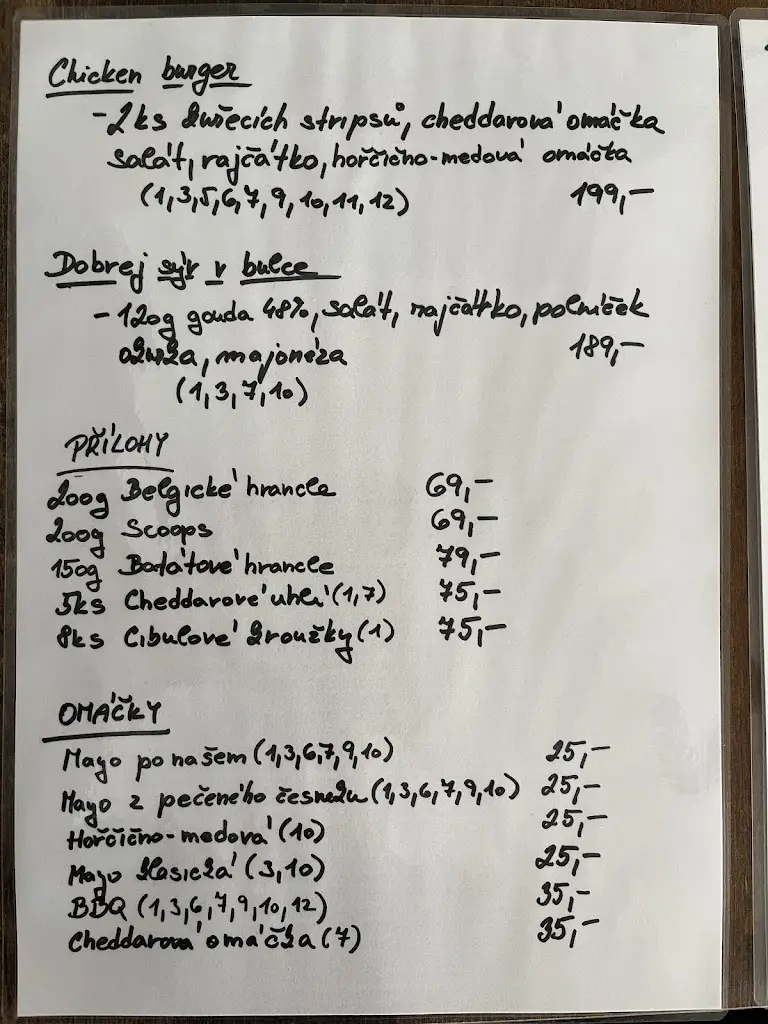 Chicken burger
- 2ks kuřecích stripsů, cheddarová omáčka
salát, rajčátko, hořčično-medová omáčka
(1,3,5,6,7,9,10,11,12) 199,-
Dobrej sýr v bulce
- 120g gouda 48%, salát, rajčátko, polníček
okurka, majonéza 189,-
(1,3,7,10)
PŘÍLOHY
200g Belgické hranole 69,-
200g Scoops 69,-
150g Batátové hranole 79,-
5ks Cheddarové uhlí (1,7) 75,-
8ks Cibulové kroužky (1) 75,-
OMÁČKY
Mayo po našem (1,3,6,7,9,10) 25,-
Mayo z pečeného česneku (1,3,6,7,9,10) 25,-
Hořčično-medová (10) 25,-
Mayo klasická (3,10) 25,-
BBQ (1,3,6,7,9,10,12) 35,-
Cheddarová omáčka (7) 35,-